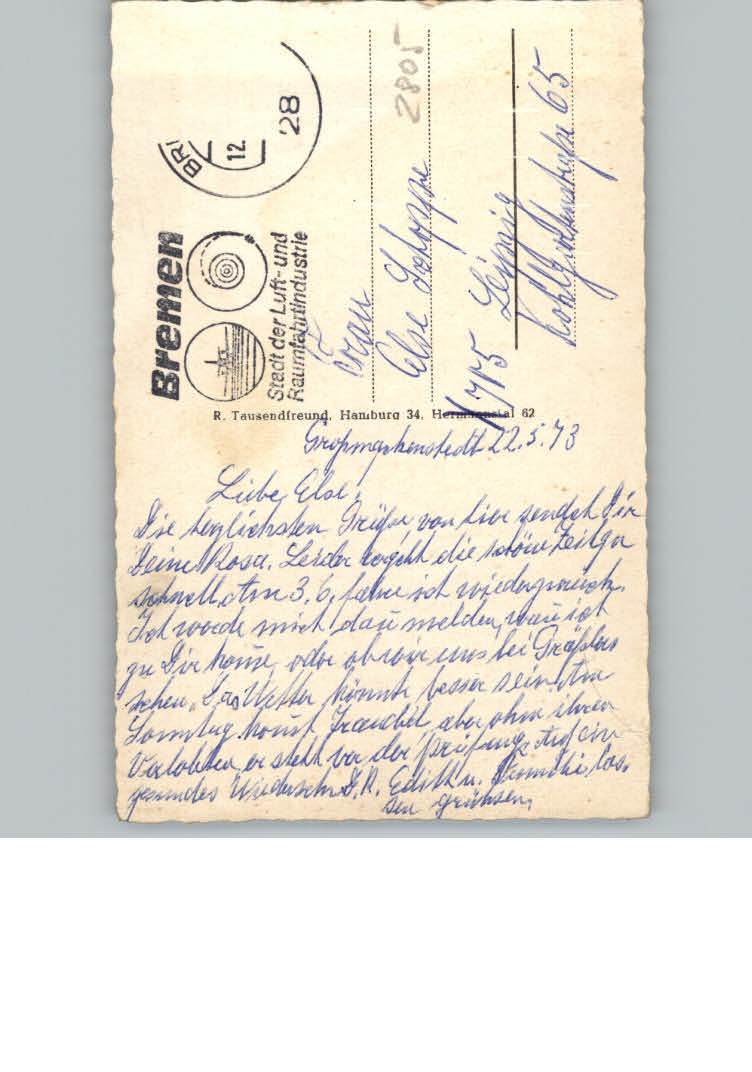 BR
12
28
Bremen
Stadt der Luft- und
Raumfahrtindustrie
2805
Frau
Else
705 Leipzig
Kohlgartenstraße 65
R. Tausendfreund, Hamburg 34, Hermannstal 62
Großmackenstedt 22.5.73
Liebe Else!
Die herzlichsten Grüße von hier sendet Dir
Deine Rosa. Leider vergeht die schöne Zeit gar
schnell. Am 3.6. fahre ich wieder zurück.
Ich werde mich dan melden, wan ich
zu Dir kome, oder ob wir uns bei
sehen. Das Wetter könnte besser sein. Am
Sonntag komt Traudel, aber ohne ihren
Verlobten, er steht vor der Prüfung. Auf ein
gesundes Wiedersehn D. R. Edith u. Familie las-
sen grüßen.